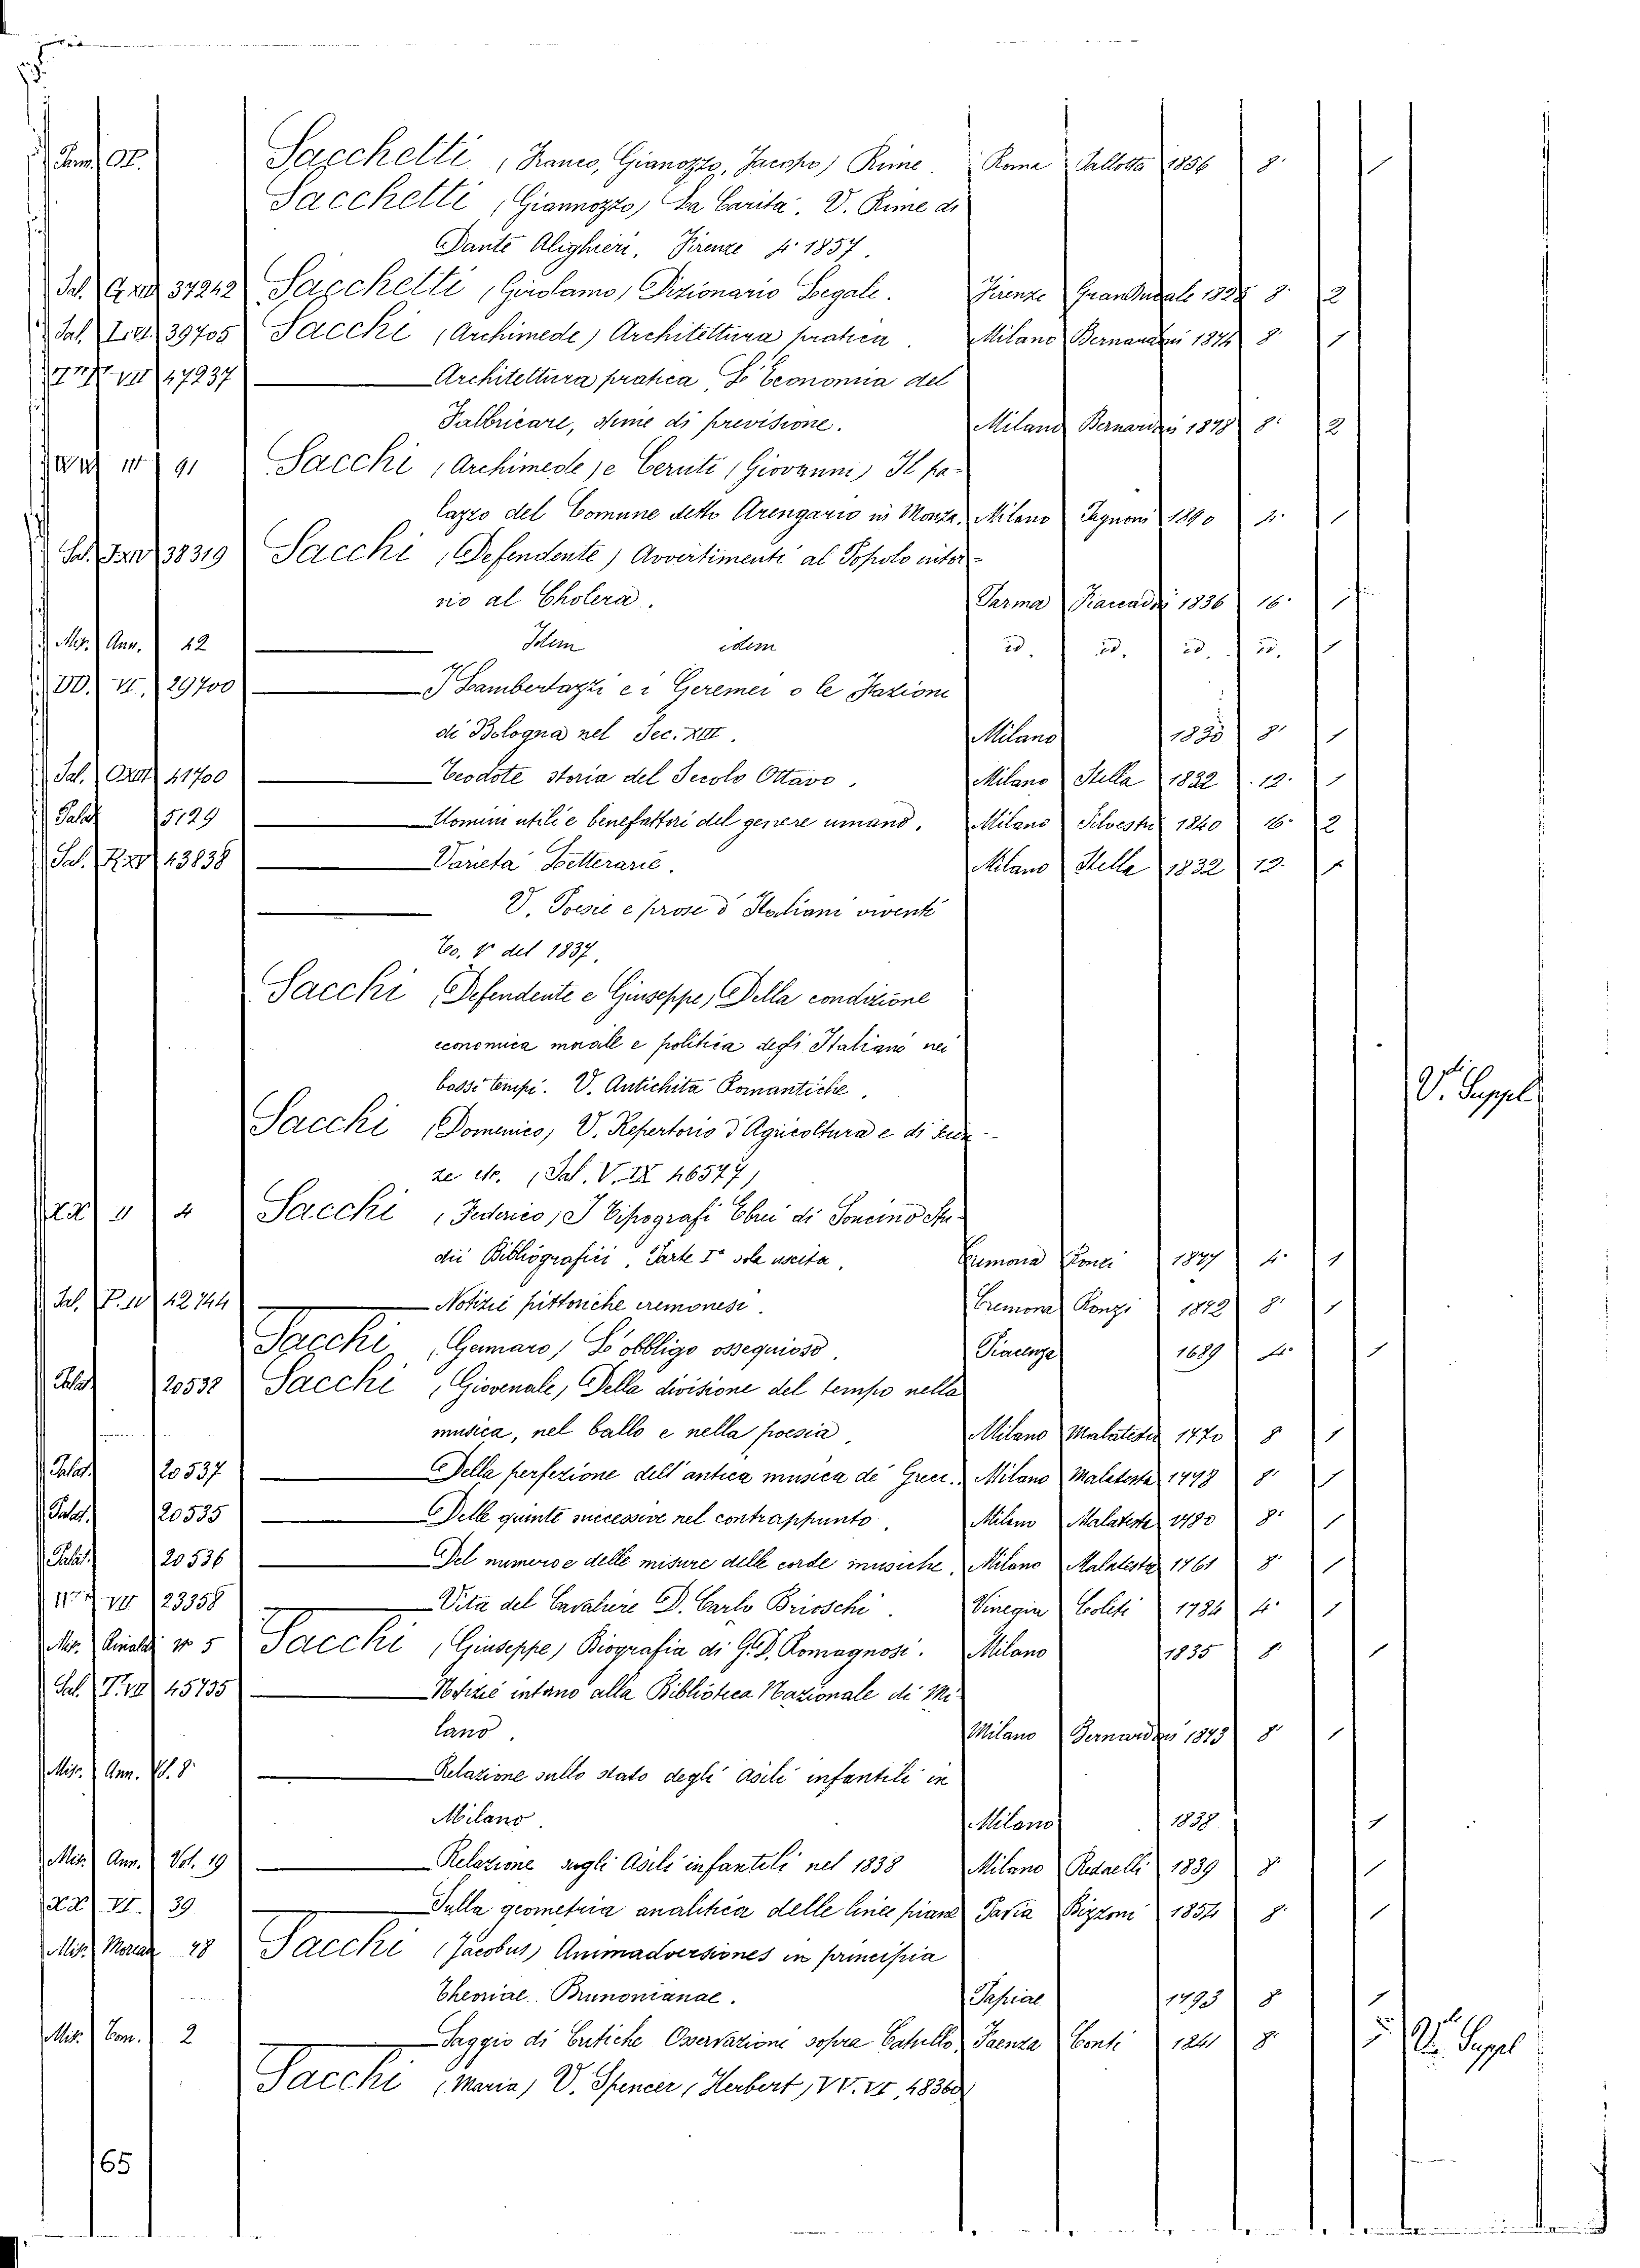 Sacchetti (Franco, Gianozzo, Jacopo) Rime. Roma Pallotta 1856 8° 1
Sacchetti (Giannozzo) La Carità. V. Rime di
Dante Alighieri, Firenze 4° 1857.
Sal. 37242 Sacchetti (Girolamo) Dizionario Legale. Firenze Granducale 8° 2
Sal. 39705 Sacchi (Archimede) Architettura pratica. Milano Bernardoni 1874 8° 1
47937 Architettura pratica, L' Economia del
Fabbricare, Stime di previsione. Milano Bernardoni 1878 8° 2
91 Sacchi (Archimede) e Ceruti (Giovanni) Il pa-
lazzo del Comune detto Arengario in Monza. Milano 1890 1
Sal. 38319 Sacchi (Defendente) Avvertimenti al Popolo intor-
no al Cholera. Parma 1836 16° 1
Mis. Ann. 42 Idem idem id. id. id. id. 1
DD. VI. 29700 I Lambertazzi e i Geremei o le Fazioni
di Bologna nel Sec. XIII. Milano 1830 8° 1
Sal. 41700 Teodote storia del Secolo Ottavo. Milano Stella 1832 12° 1
Palat 15129 Uomini utili e benefattori del genere umano. Milano Silvestri 1840 16° 2
Sal. 43838 Varietà Letterarie. Milano Stella 1832 12° 1
V. Poesie e prose d' Italiani viventi
To. V del 1837.
Sacchi (Defendente e Giuseppe) Della condizione
economica morale e politica degli Italiani nei
bassi tempi. V. Antichità Romantiche.
V. Suppl
Sacchi (Domenico) V. Repertorio d' Agricoltura e di scien-
ze etc. (Sal. V. IX 46577)
4 Sacchi (Federico) I Tipografi Ebrei di Soncino Stu-
dii Bibliografici. Parte I° sola uscita. Cremona Ronzi 1877 4° 1
Sal. 42744 Notizie pittoriche cremonesi. Cremona Ronzi 1872 8° 1
Sacchi (Gennaro) L' obbligo ossequioso. Piacenza 1689 4° 1
Palat 20532 Sacchi (Giovenale) Della divisione del tempo nella
musica, nel ballo e nella poesia. Milano Malatesta 1770 8 1
Palat. 20537 Della perfezione dell' antica musica de' Greci. Milano Malatesta 1778 8° 1
Palat. 20535 Delle quinte successive nel contrappunto. Milano Malatesta 1780 8° 1
Palat. 20536 Del numero e delle misure delle corde musiche. Milano Malatesta 1761 8° 1
23358 Vita del Cavaliere D. Carlo Brioschi. Vinegia Coleti 1784 4° 1
Mis. Rinaldi n° 5 Sacchi (Giuseppe) Biografia di G. D. Romagnosi. Milano 1835 8 1
Sal. 45735 Notizie intorno alla Biblioteca Nazionale di Mi-
lano. Milano Bernardoni 1873 8° 1
Mis. Ann. Relazione sullo stato degli asili infantili in
Milano. Milano 1838 1
Mis. Ann. Vol. 19 Relazione sugli Asili infantili nel 1838 Milano Redaelli 1839 8° 1
39 Sulla geometria analitica delle linee piane Pavia Bizzoni 1854 8° 1
Mis. 48 Sacchi (Jacobus) Animadversiones in principia
Theoriae Brunonianae. Papiae 1793 8 1
Mis. Con. 2 Saggio di Critiche Osservazioni sopra Catullo Faenza Conti 1841 8° V. Suppl
Sacchi (Maria) V. Spencer (Herbert)
65